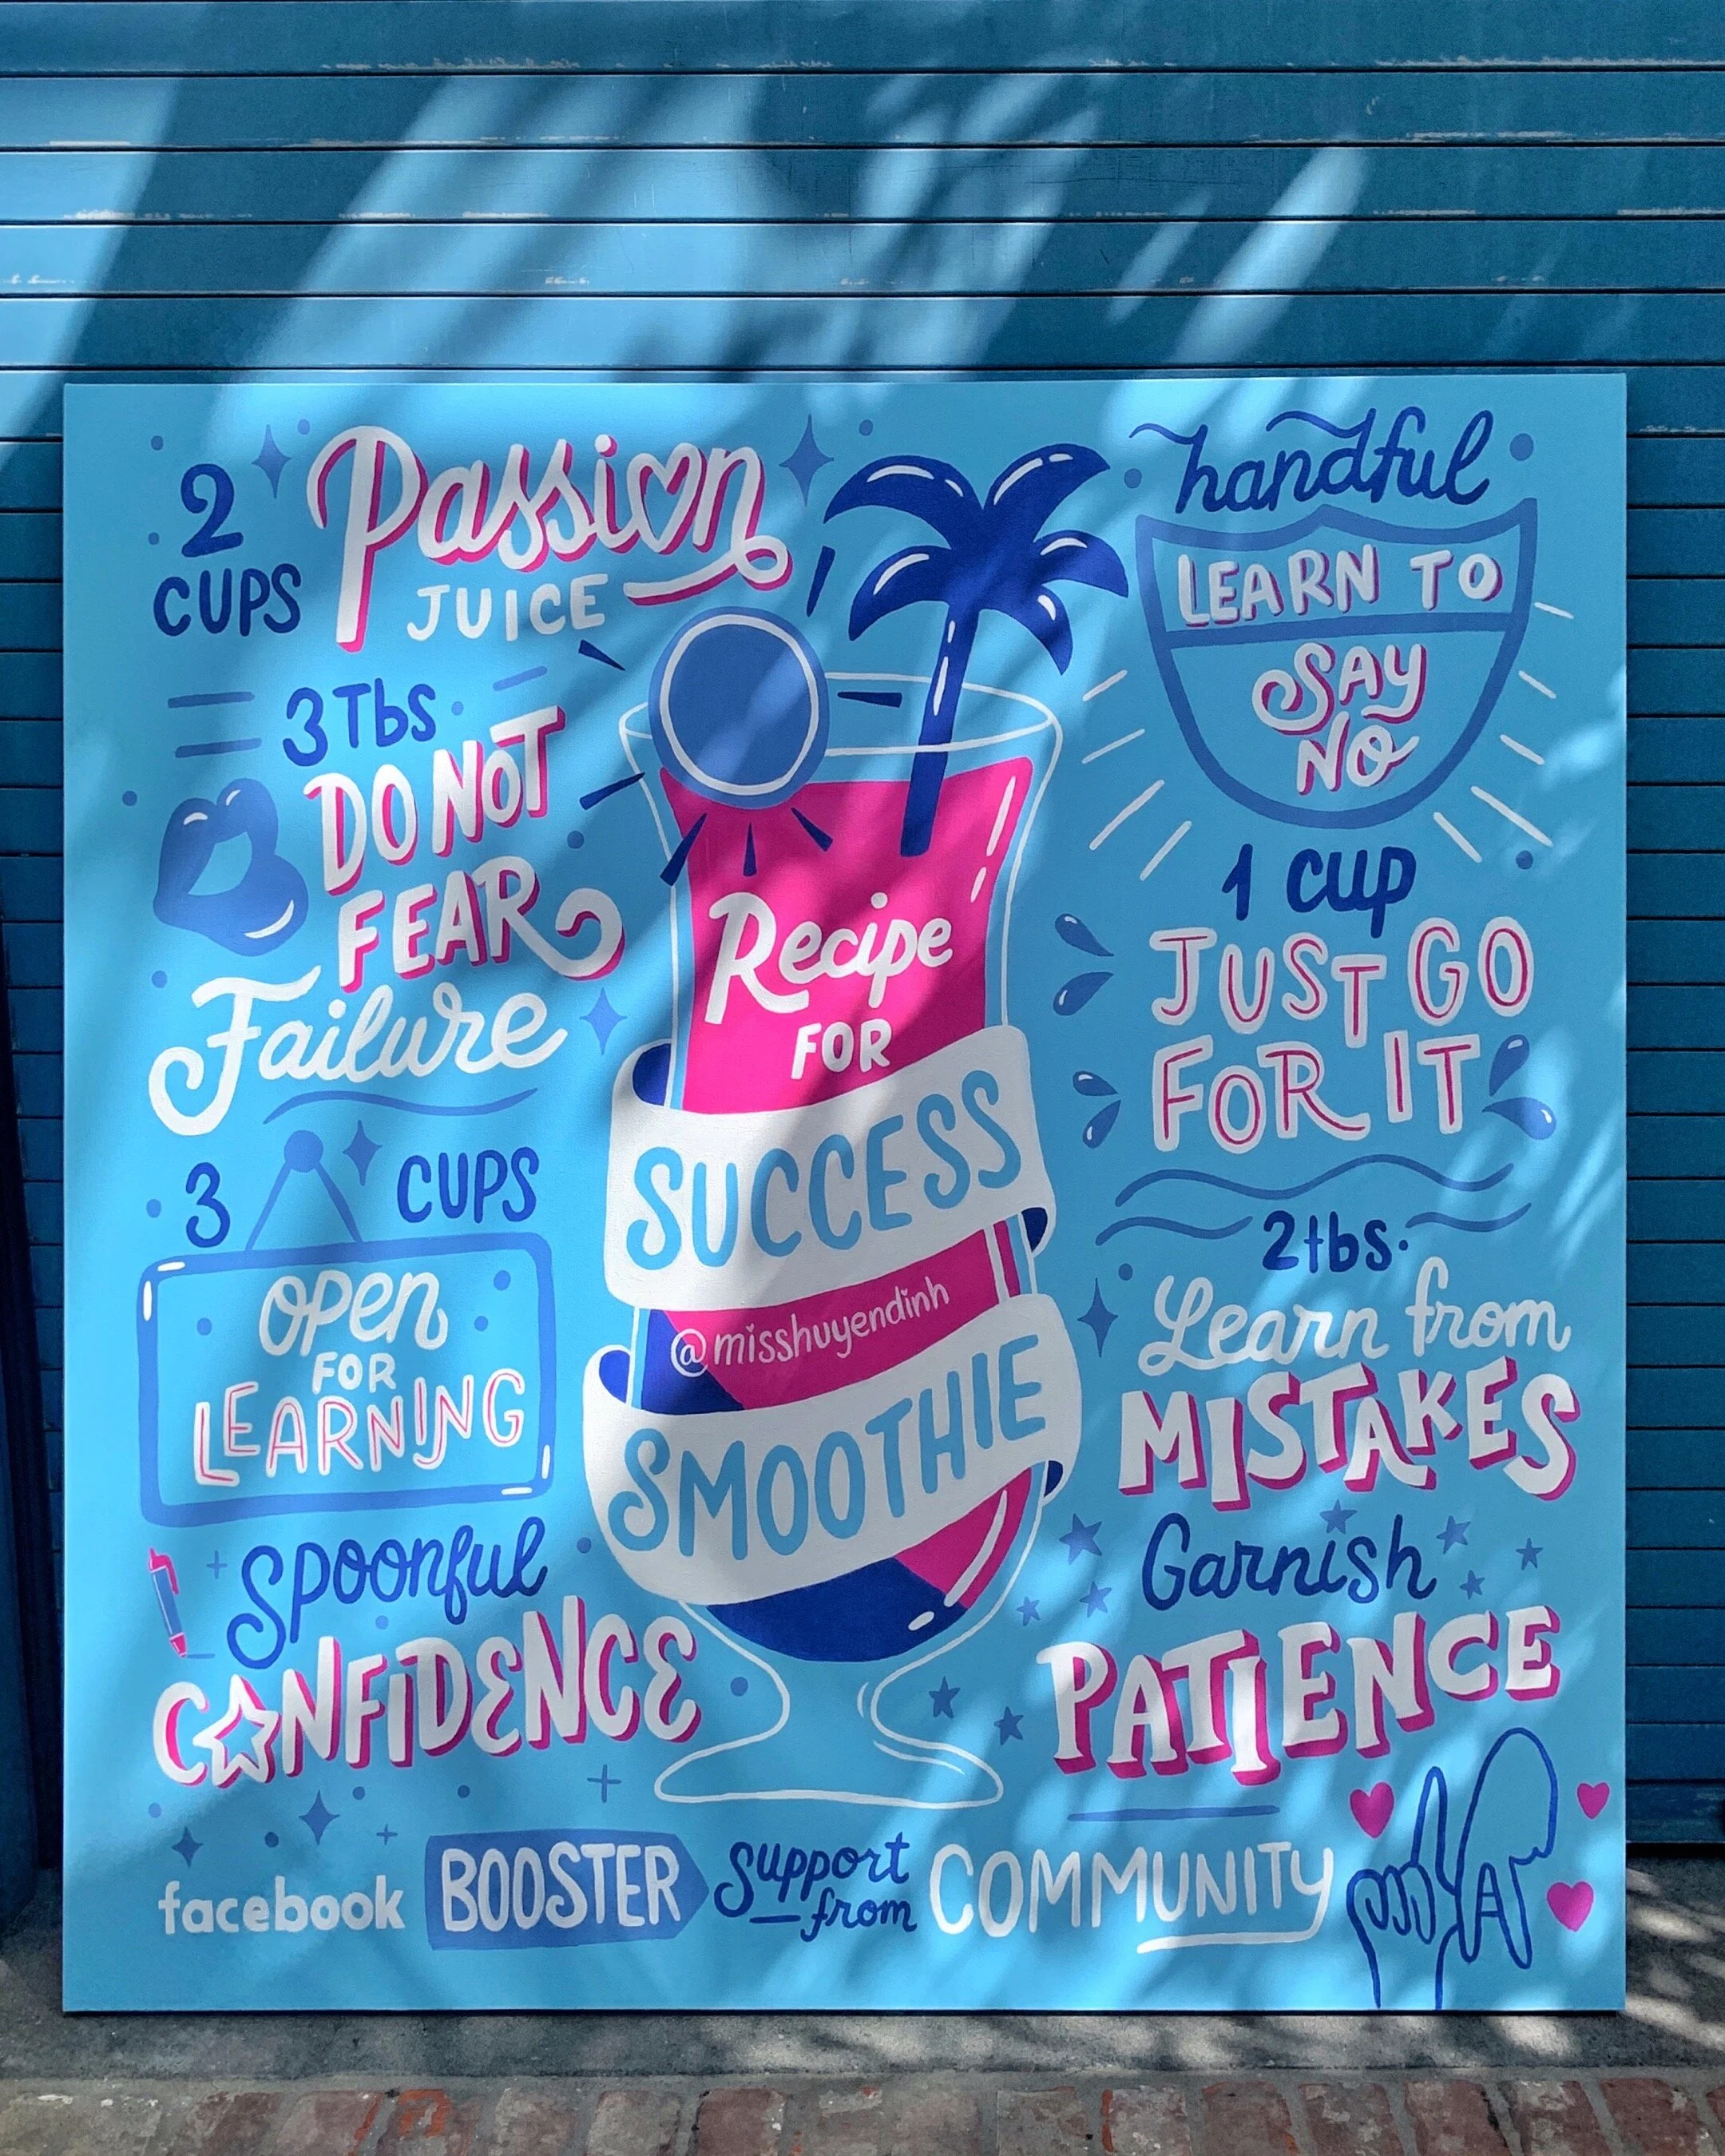 2
CUPS
Passion
JUICE
3 Tbs.
DO NOT
FEAR
Failure
3 CUPS
OPEN
FOR
LEARNING
Spoonful
CONFIDENCE
Recipe
FOR
SUCCESS
@misshuyendinh
SMOOTHIE
handful
LEARN TO
SAY
NO
1 cup
JUST GO
FOR IT
2 tbs.
Learn from
MISTAKES
Garnish
PATIENCE
facebook BOOSTER Support
from COMMUNITY